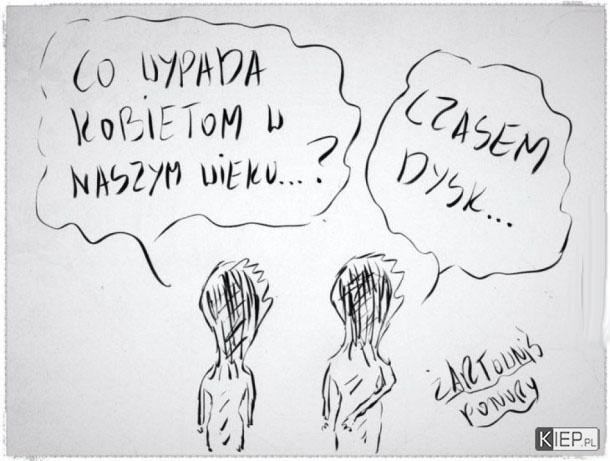 CO WYPADA
KOBIETOM W
NASZYM WIEKU...?
CZASEM
DYSK...
ŻARTOWNIŚ
PONURY
KIEP.PL